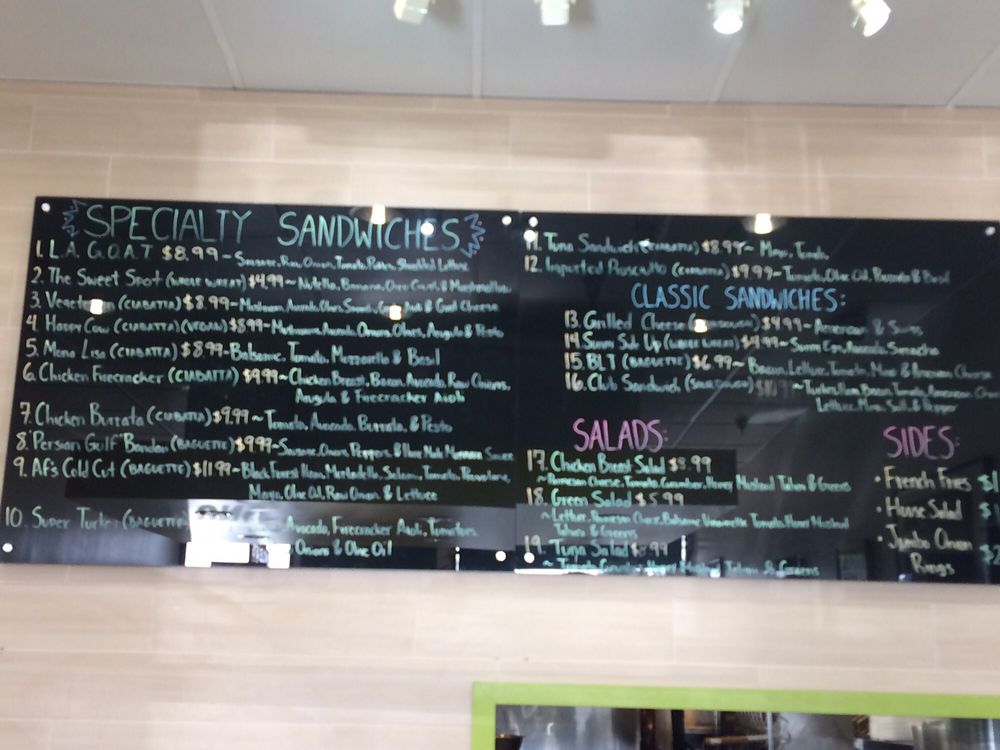 SPECIALTY SANDWICHES
1. L.A. G.O.A.T $8.99 - Sausage, Raw Onion, Tomato, Shredded Lettuce
2. The Sweet Spot (WHOLE WHEAT) $4.99 ~ Nutella, Banana, & Marshmallow
3. (CIABATTA) $8.99 ~ Mushroom, Avocado, Olives, & Goat Cheese
4. Happy Cow (CIABATTA) (VEGAN) $8.99 - Mushrooms, Avocado, Onions, Olives, Arugula & Pesto
5. Mona Lisa (CIABATTA) $8.99 - Balsamic, Tomato, Mozzarella & Basil
6. Chicken Firecracker (CIABATTA) $9.99 ~ Chicken Breast, Bacon, Avocado, Raw Onions,
Arugula & Firecracker Aioli
7. Chicken Burrata (CIABATTA) $9.99 ~ Tomato, Avocado, Burrata, & Pesto
8. "Persian Gulf" Bandari (BAGUETTE) $9.99 - Sausage, Onion, Peppers, &
9. Al's Cold Cut (BAGUETTE) $11.99 - Black Forest Ham, Mortadella, Salami, Tomato, Provolone,
Mayo, Olive Oil, Raw Onion & Lettuce
10. Super Turkey (BAGUETTE) Avocado, Firecracker Aioli, Tomatoes
Onions & Olive Oil
11. Tuna Sandwich (CIABATTA) $8.99 ~ Mayo, Tomato,
12. Imported Prosciutto (CIABATTA) $9.99 - Tomato, Olive Oil, & Basil
CLASSIC SANDWICHES:
13. Grilled Cheese $4.99 - American & Swiss
14. Sunny Side Up (WHOLE WHEAT) $4.99 ~ Sunny Egg, Avocado, Sriracha
15. BLT (BAGUETTE) $6.99 ~ Bacon, Lettuce, Tomato, Mayo & American Cheese
16. Club Sandwich (SOURDOUGH) ~ Turkey, Ham, Bacon, Tomato, American
Lettuce, Mayo, Salt & Pepper
SALADS:
17. Chicken Breast Salad $8.99
~ Parmesan Cheese, Tomato, Cucumber, Honey Mustard & Greens
18. Green Salad $5.99
~ Lettuce, Parmesan Cheese, Balsamic Vinaigrette, Tomato, Honey Mustard
& Greens
19. Tuna Salad $8.99
~ Tomato, Honey Mustard & Greens
SIDES:
• French Fries
• House Salad
• Jumbo Onion
Rings